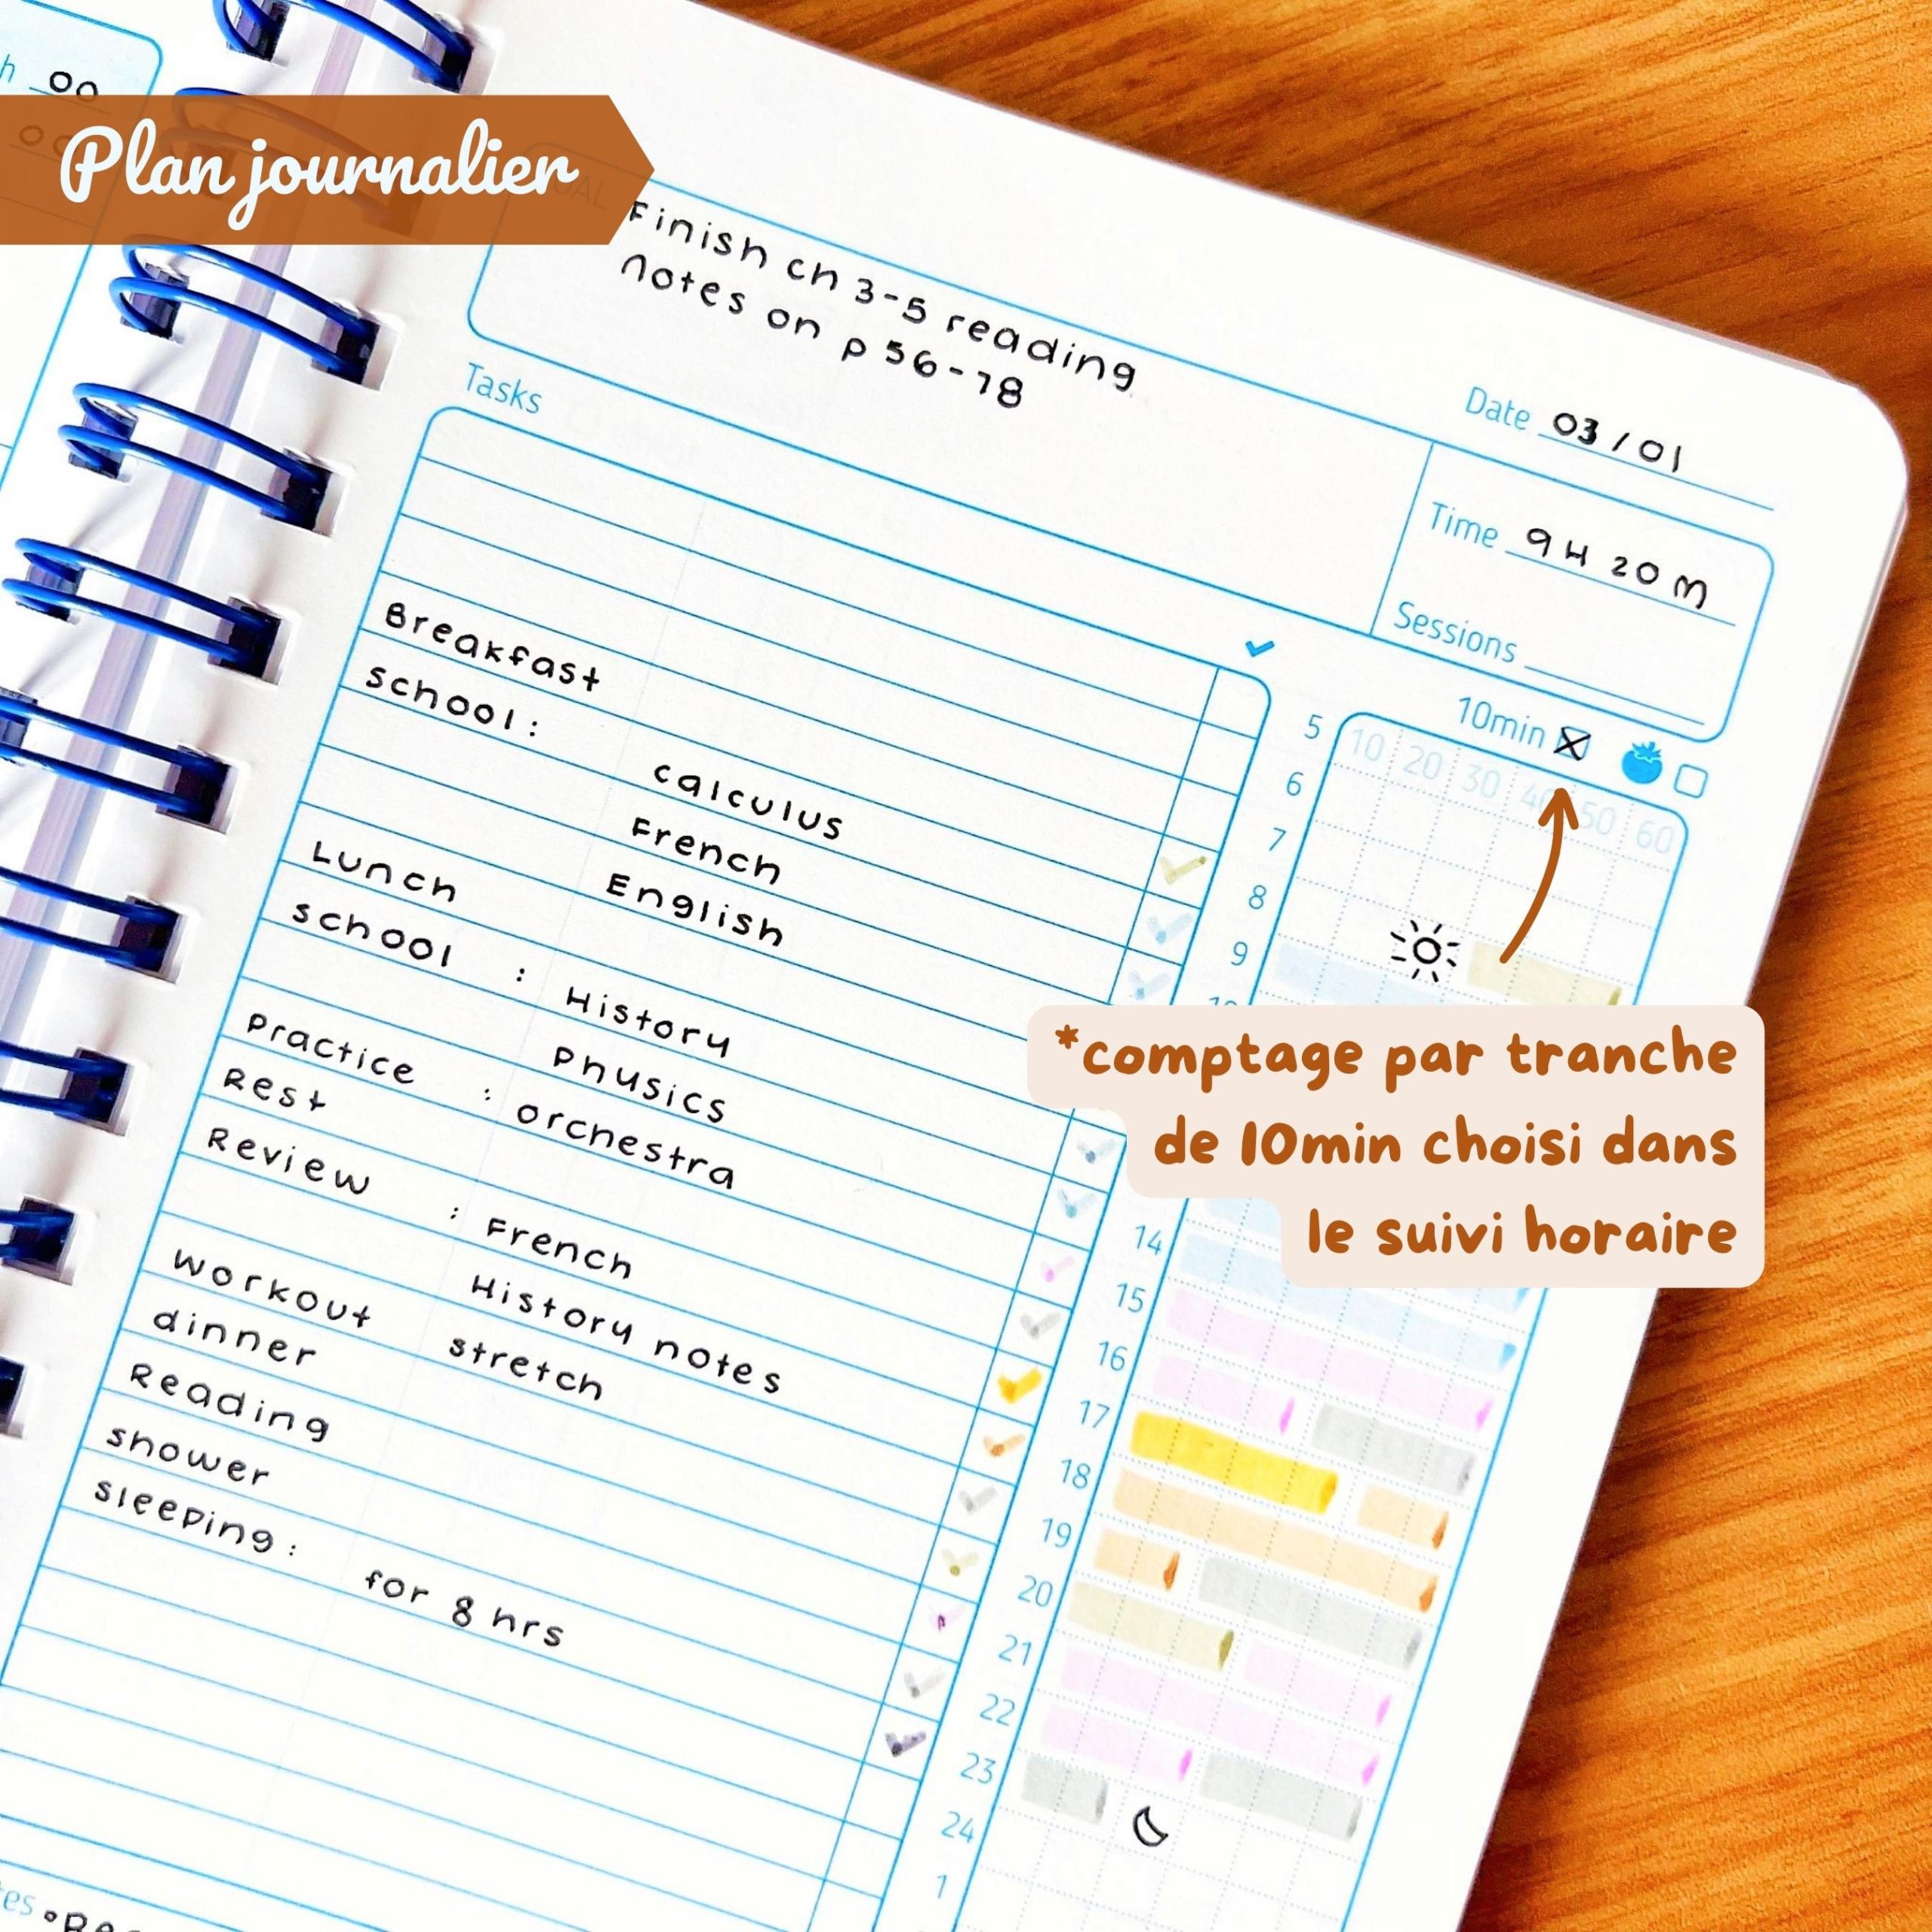 h 00
Plan journalier
Finish ch 3-5 reading
notes on p 56-78
Date 03/01
Time 9H 20M
Sessions
Tasks
10min
10 20 30 40 50 60
Breakfast
school: calculus
French
English
Lunch
school : History
Phusics
Practice : orchestra
Rest
Review : French
History notes
workout stretch
dinner
Reading
shower
sleeping: for 8 hrs
5
6
7
8
9
14
15
16
17
18
19
20
21
22
23
24
1
*comptage par tranche
de 10min choisi dans
le suivi horaire